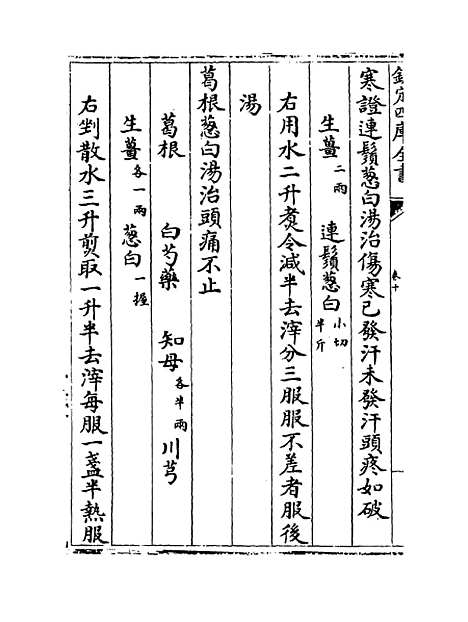 欽定四庫全書
卷十
寒證連鬚葱白湯治傷寒已發汗未發汗頭疼如破
生薑二兩　連鬚葱白小切半斤
右用水二升煮令減半去滓分三服服不差者服後
湯
葛根葱白湯治頭痛不止
葛根　白芍藥　知母各半兩　川芎
生薑各一兩　葱白一握
右剉散水三升煎取一升半去滓每服一盞半熱服